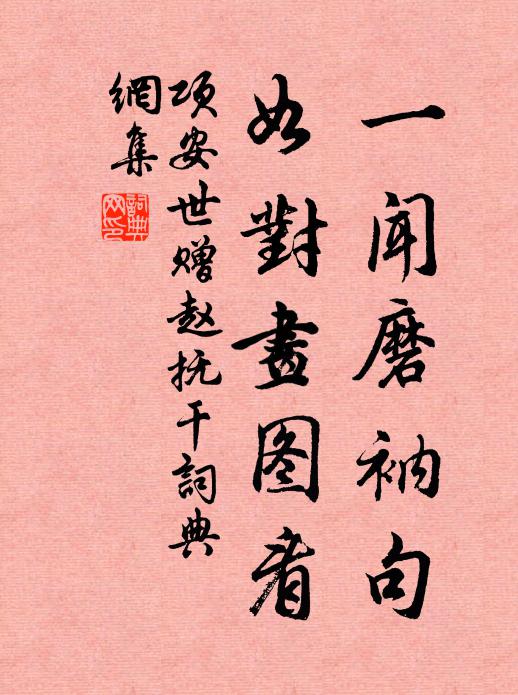 一闻磨衲句
如對畫图看
项安世赠赵抚干詞典
網集
詞典网印